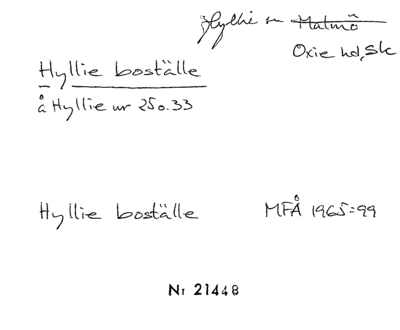 Hyllie sn Malmö
Oxie hd, Sk
Hyllie boställe
å Hyllie nr 25o.33
Hyllie boställe MFÅ 1965:99
Nr 21448